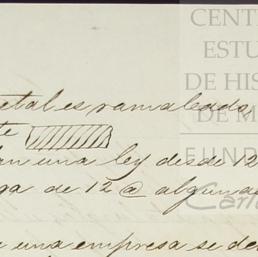 CENT
ESTU
DE HIS
DE M
FUND
Carl
etales ramaleado,
te
an una ley desde 12
ga de 12 @ alguna
una empresa se de